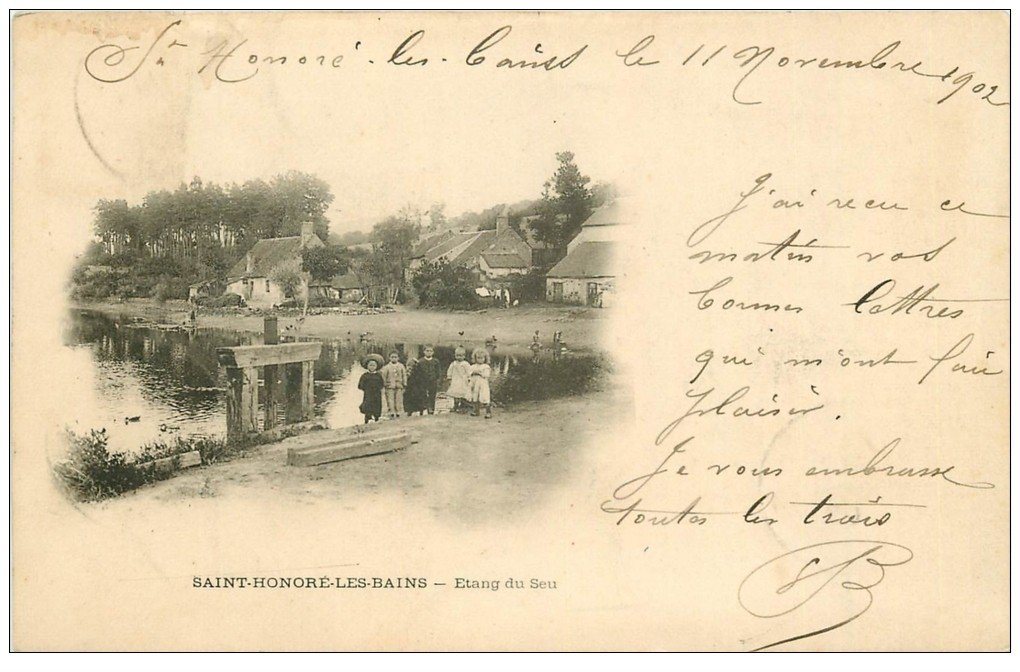 St Honoré-les-Bains le 11 Novembre 1902
J'ai recu ce
matin vos
bonnes lettres
qui m'ont fait
plaisir.
Je vous embrasse
toutes les trois
SAINT-HONORÉ-LES-BAINS — Etang du Seu